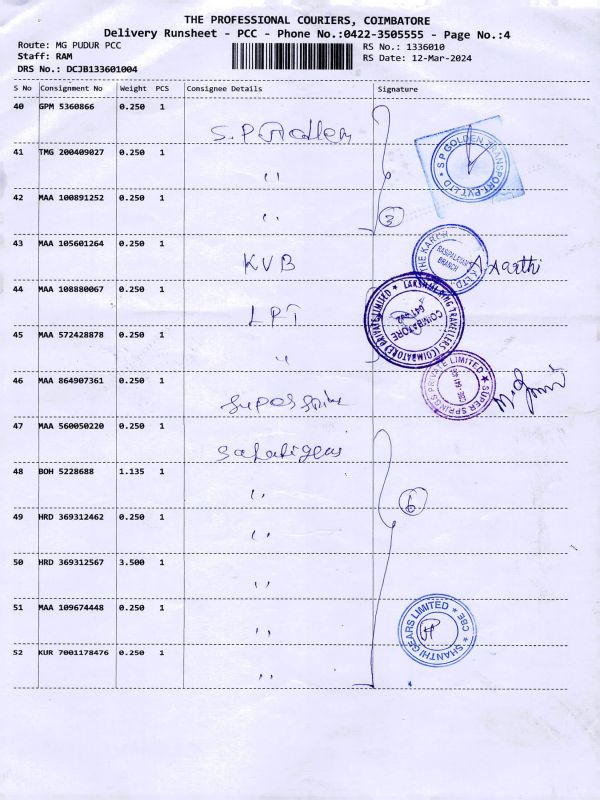 THE PROFESSIONAL COURIERS, COIMBATORE
Delivery Runsheet - PCC - Phone No.:0422-3505555 - Page No.:4
Route: MG PUDUR PCC
Staff: RAM
DRS No.: DCJB133601004
RS No.: 1336010
RS Date: 12-Mar-2024
S No Consignment No Weight PCS Consignee Details Signature
40 GPM 5360866 0.250 1 S.P Golden
41 TMG 200409027 0.250 1 "
42 MAA 100891252 0.250 1 " 3
S P GOLDEN TRANSPORT PVT LTD
43 MAA 105601264 0.250 1 KVB Aarthi
THE KARUR
BRANCH
44 MAA 108880067 0.250 1 LPT
LAKSHMI TRAVELLERS (COIMBATORE) PRIVATE LIMITED
COIMBATORE
45 MAA 572428878 0.250 1 "
46 MAA 864907361 0.250 1
SUPER SPRINGS PRIVATE LIMITED
47 MAA 560050220 0.250 1
48 BOH 5228688 1.135 1 " 6
49 HRD 369312462 0.250 1 "
50 HRD 369312567 3.500 1 "
51 MAA 109674448 0.250 1 "
SHANTHI GEARS LIMITED ★ CBE ★
52 KUR 7001178476 0.250 1 "